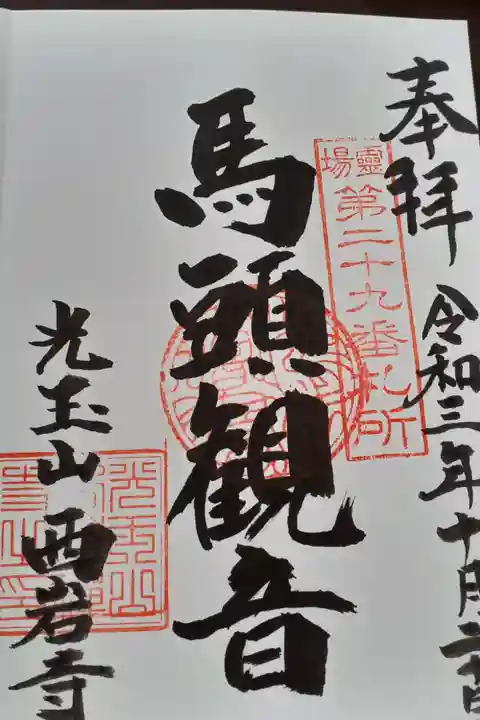 奉拝
霊場
第二十九番札所
令和三年十月
馬頭観音
光玉山 西岩寺